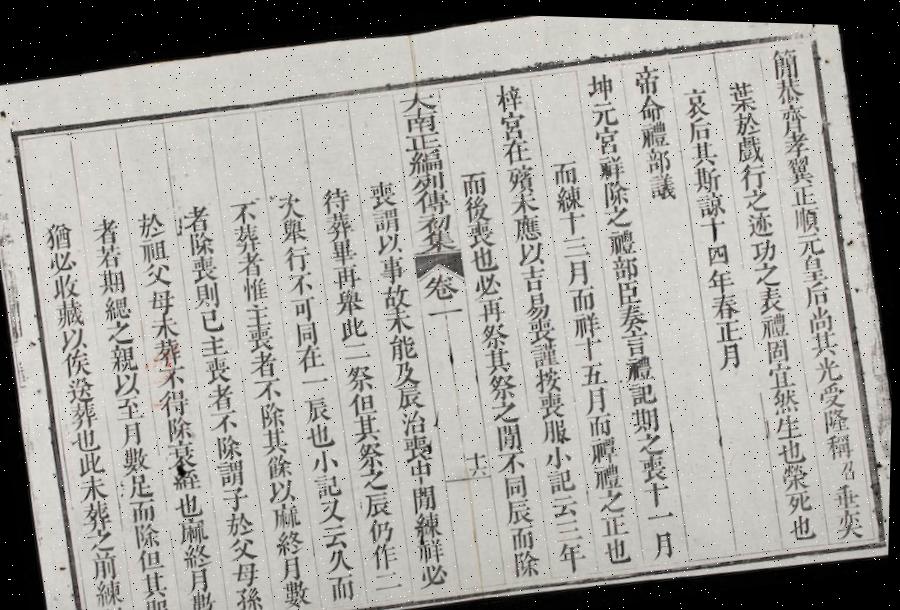 簡恭齊孝翼正順元皇后尚其光受隆稱名垂奕
葉於戲行之迹功之表禮固宜然生也榮死也
哀后其斯諒十四年春正月
帝命禮部議
坤元宮祥除之禮部臣奏言禮記期之喪十一月
而練十三月而祥十五月而禫禮之正也
梓宮在殯未應以吉易喪謹按喪服小記云三年
而後喪也必再祭其祭之閒不同辰而除
大南正編列傳初集 卷一 十六
喪謂以事故未能及辰治喪中閒練祥必
待葬畢再舉此二祭但其祭之辰仍作二
次舉行不可同在一辰也小記又云久而
不葬者惟主喪者不除其餘以麻終月數
者除喪則已主喪者不除謂子於父母孫
於祖父母未葬不得除衰絰也麻終月數
者若期緦之親以至月數足而除但其服
猶必收藏以俟送葬也此未葬之前練